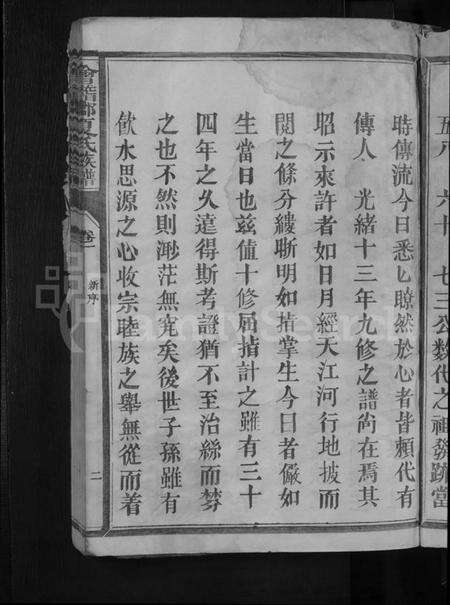 五八 六十 七三公數代之祖發跡當
時傳流今日悉已瞭然於心者皆賴代有
傳人 光緒十三年九修之譜尚在焉其
昭示來許者如日月經天江河行地披而
閱之條分縷晰明如指掌生今日者儼如
生當日也茲值十修屈指計之雖有三十
四年之久遠得斯考證猶不至治絲而棼
之也不然則渺茫無究矣後世子孫雖有
飲水思源之心收宗睦族之舉無從而着
會稽郡夏氏族譜
卷一 新序 二
FamilySearch